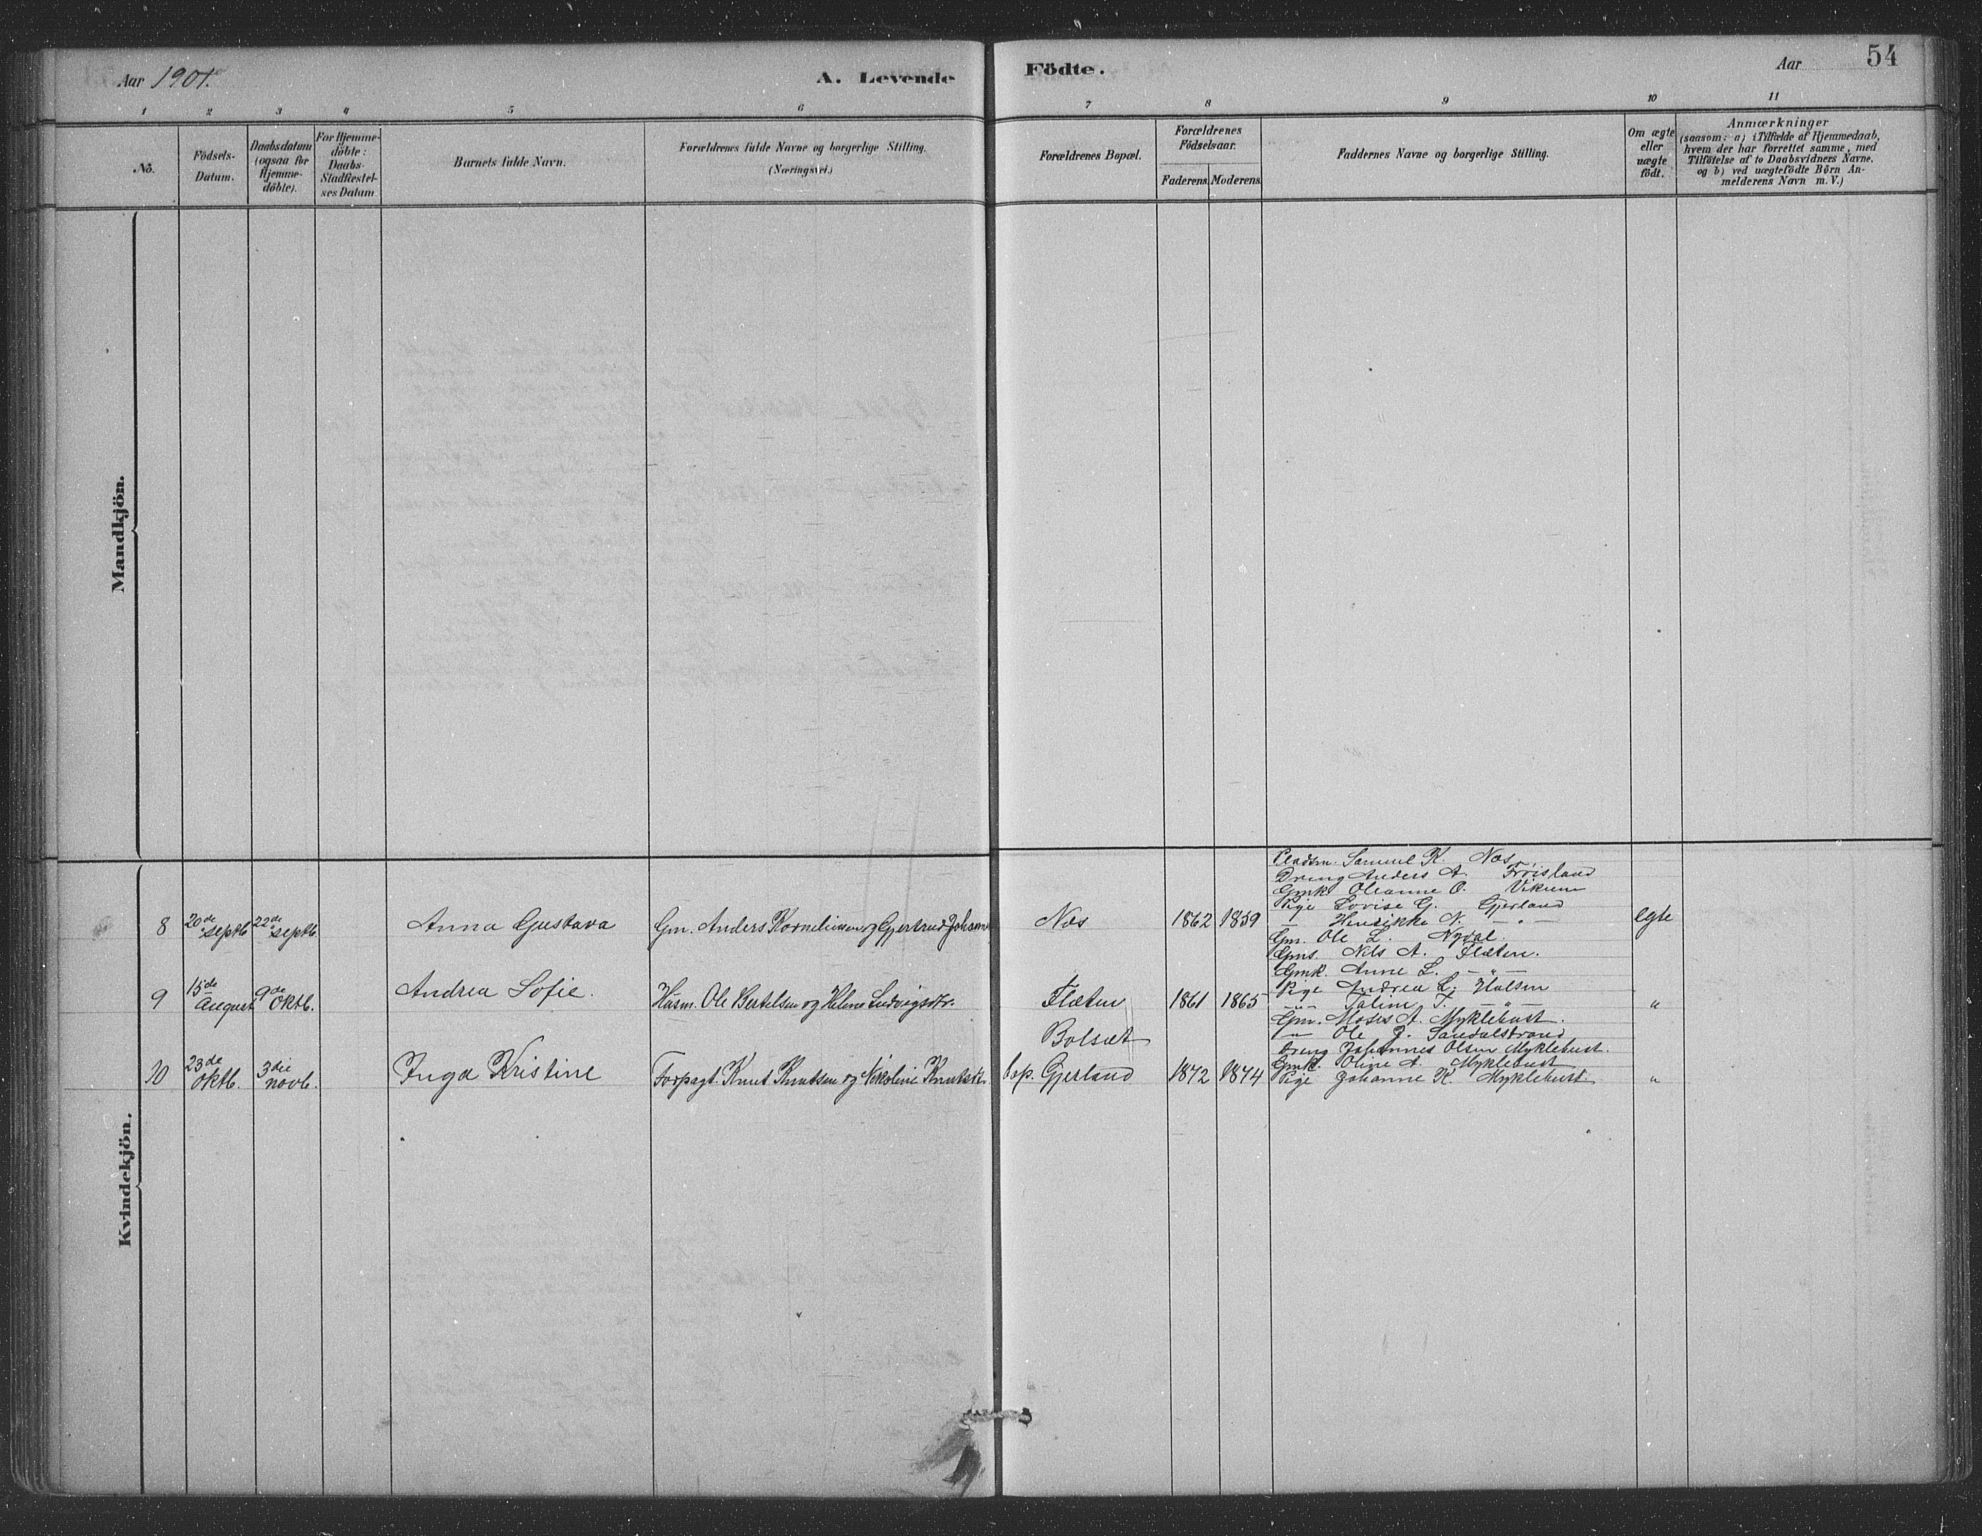 Aar 1901.
A. Levende
Födte.
Aar
54
1 2 3 4 5 6 7 8 9 10 11
No.
Födsels-
Datum.
Daabsdatum
(ogsaa for
Hjemme-
döbte).
For Hjemme-
döbte:
Daabs-
Stadfæstel-
ses Datum
Barnets fulde Navn.
Forældrenes fulde Navne og borgerlige Stilling.
(Næringsvei.)
Forældrenes Bopæl.
Forældrenes
Födselsaar.
Faderens. Moderens.
Faddernes Navne og borgerlige Stilling.
Om ægte
eller
uægte
födt.
Anmærkninger
(saasom: a) i Tilfælde af Hjemmedaab,
hvem der har forrettet samme, med
Tilföielse af to Daabsvidners Navne,
og b) ved uægtefödte Börn An-
melderens Navn m. V.)
Mandkjön.
Kvindekjön.
8
20de
septb.
22de
septb.
Anna Gustava
Gm. Anders Korneliussen og Gjertrud Johanne
Nos
1862 1859
Pladsm. Samuel K. Nos
Dreng Anders A. Frøisland
Gmk. Oleanne O. Vikum
Pige Lovise G. Gjerland
— Henrikke N. — " —
egte
9
15de
August
9de
Oktb.
Andrea Sofie.
Husm. Ole Bertelsen og Helene Ludvigsdtr.
Flæten
1861 1865
Gm. Ole L. Nydal.
Gms. Nils A. Flæten.
Gmk. Anne L. — " —
Pige Andrea L. Holsen
— " — Taline T. — " —
"
10
23de
Oktb.
3die
novb.
Inga Kristine
Forpagt. Knut Knutsen og Nikoline Knutsdtr.
Bolsæt
bop. Gjerland
1872 1874
Gm. Moses A. Myklebust.
— " — Ole J. Sandalstrand
Dreng Johannes Olsen Myklebust.
Gmk. Oline A. Myklebust
Pige Johanne K. Myklebust
"